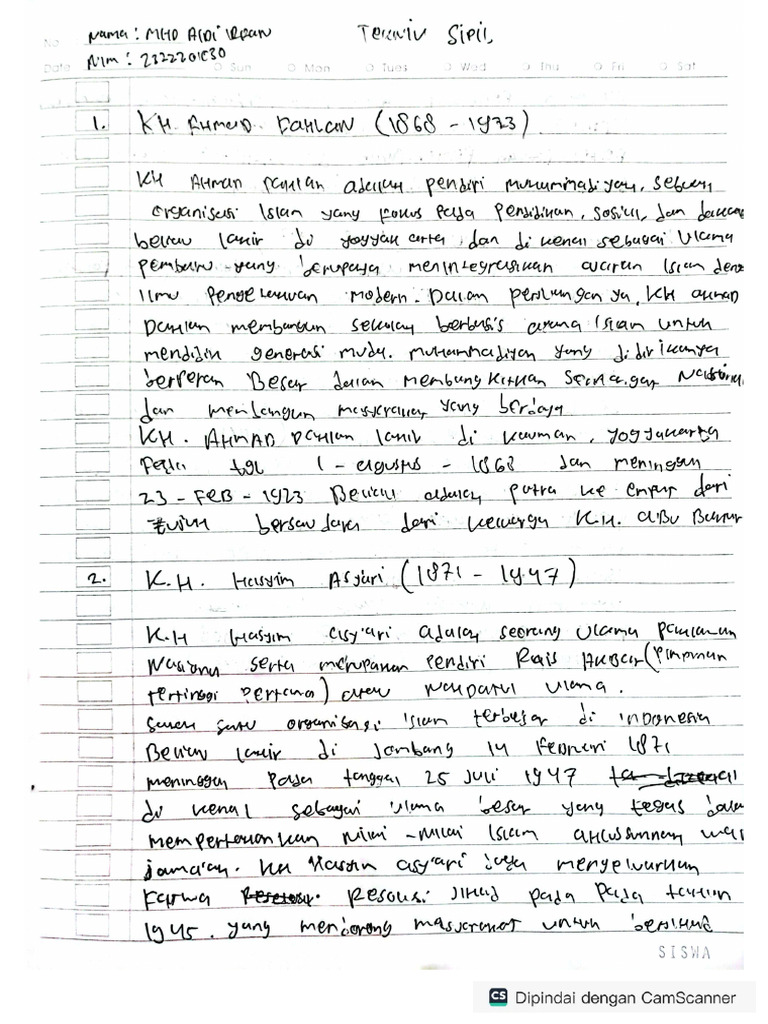 Nama : MHD ALDI IRFAN Teknik Sipil
No
Nim : 2322201030
Date Sun Mon Tues Wed Thu Fri Sat
1. KH. AHMAD. DAHLAN (1868 - 1923)
KH AHMAD DAHLAN adalah pendiri Muhammadiyah, sebuah
organisasi Islam yang fokus pada pendidikan, sosial, dan dakwah
beliau lahir di yogyakarta dan di kenal sebagai Ulama
pembaru yang berupaya mengintegrasikan ajaran Islam deng
Ilmu Pengetahuan modern. Dalam perjuangan ya, KH AHMAD
Dahlan membangun sekolah berbasis agama Islam untuk
mendidik generasi muda. muhammadiyah yang didirikannya
berperan Besar dalam membangkitkan semangat Nasional
dan membangun masyarakat yang berdaya
KH. AHMAD Dahlan lahir di kauman, yogyakarta
Pada tgl 1 - Agustus - 1868 dan meninggal
23 - FEB - 1923 Beliau adalah putra ke empat dari
bersaudara dari keluarga K.H. Abu Bakar
2. K.H. Hasyim Asy'ari (1871 - 1947)
K.H Hasyim Asy'ari adalah seorang Ulama pahlawan
Nasional serta merupakan pendiri Rais Akbar (Pimpinan
tertinggi Pertama) atau Nahdatul Ulama.
Salah satu organisasi Islam terbesar di indonesia
Beliau lahir di Jombang 14 Februari 1871
meninggal pada tanggal 25 Juli 1947
di kenal sebagai Ulama besar yang tegas dalam
mempertahankan nilai - nilai Islam ahlussunnah wal
jama'ah. KH Hasyim asy'ari juga mengeluarkan
Fatwa Resolusi Jihad pada pada tahun
1945. yang mendorong masyarakat untuk
SISWA
CS Dipindai dengan CamScanner